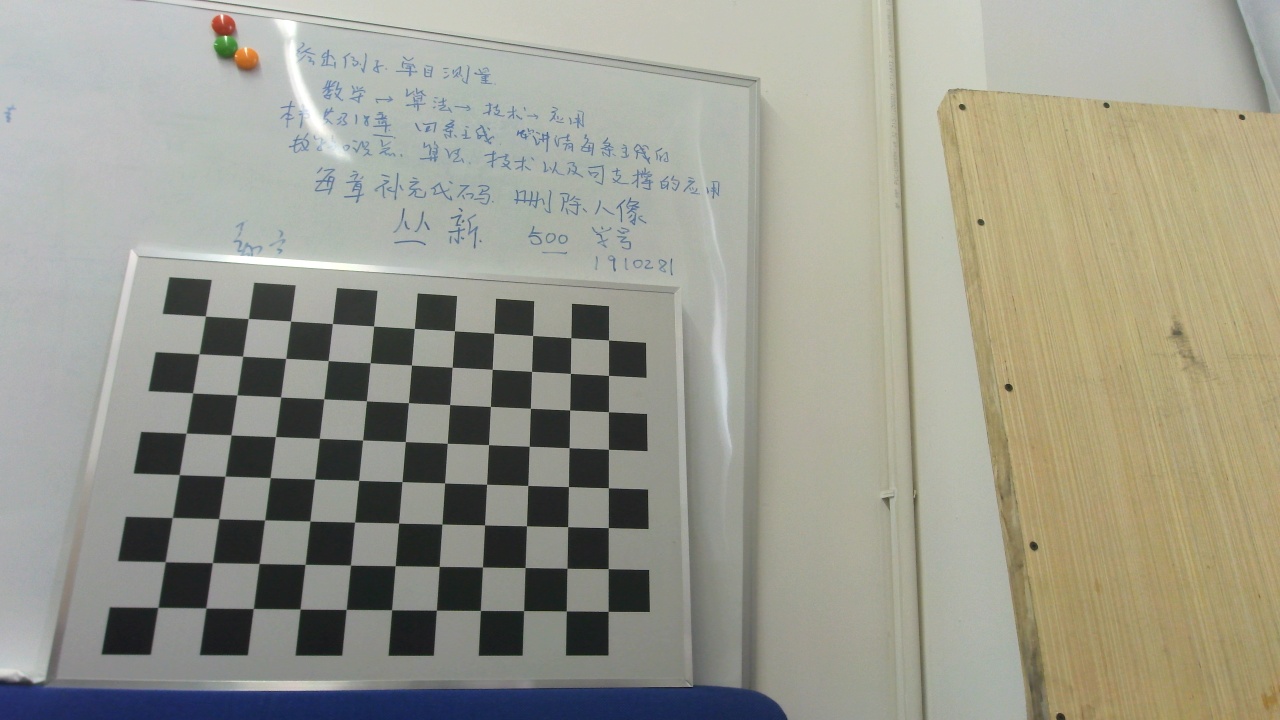 给出例子. 单目测量
数学→算法→技术→应用
本书共18章 四条主线 讲清每条主线的
算法. 技术以及可支撑的应用
每章补充代码. 删除人像
丛新. 500 学号
1910281